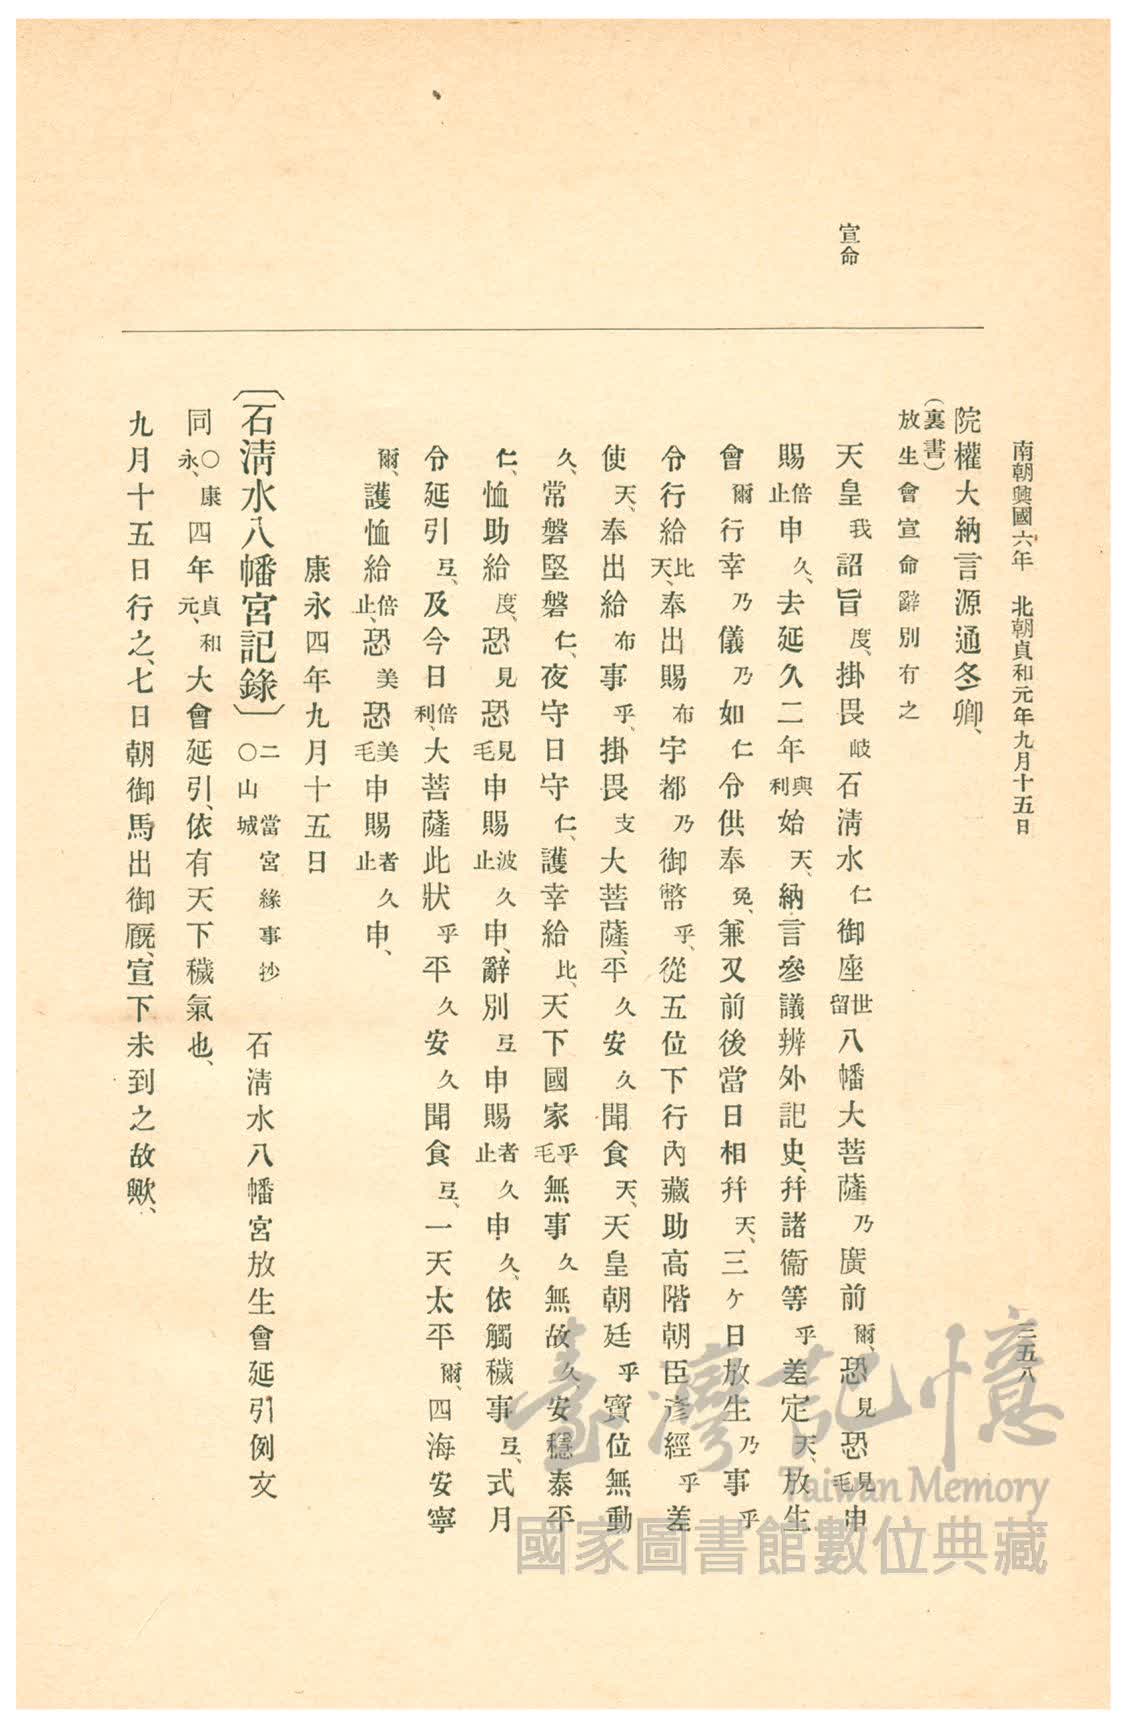 南朝興國六年　北朝貞和元年九月十五日
三五八
宣命
院權大納言源通冬卿、
(裏書)
放生會宣命辭別有之
天皇我詔旨度、掛畏岐石淸水仁御座世留八幡大菩薩乃廣前爾、恐見恐見毛申
賜倍止申久、去延久二年與利始天、納言參議辨外記史、幷諸衞等乎差定天、放生
會爾行幸乃儀乃如仁令供奉免、兼又前後當日相幷天、三ケ日放生乃事乎
令行給比天、奉出賜布宇都乃御幣乎、從五位下行內藏助高階朝臣彥經乎差
使天、奉出給布事乎、掛畏支大菩薩、平久安久聞食天、天皇朝廷乎寶位無動
久、常磐堅磐仁、夜守日守仁、護幸給比、天下國家乎毛、無事久無故久安穩泰平
仁、恤助給度、恐見恐見毛申賜波止久申、辭別弖申賜者止久申久、依觸穢事弖、式月
令延引弖、及今日倍利、大菩薩此狀乎平久安久聞食弖、一天太平爾、四海安寧
爾、護恤給倍止、恐美恐美毛申賜者止久申、
康永四年九月十五日
〔石淸水八幡宮記錄〕二○山城當宮緣事抄　石淸水八幡宮放生會延引例文
同○康永、四年貞和元、大會延引、依有天下穢氣也、
九月十五日行之、七日朝御馬出御厩、宣下未到之故歟、
臺灣記憶
Taiwan Memory
國家圖書館數位典藏